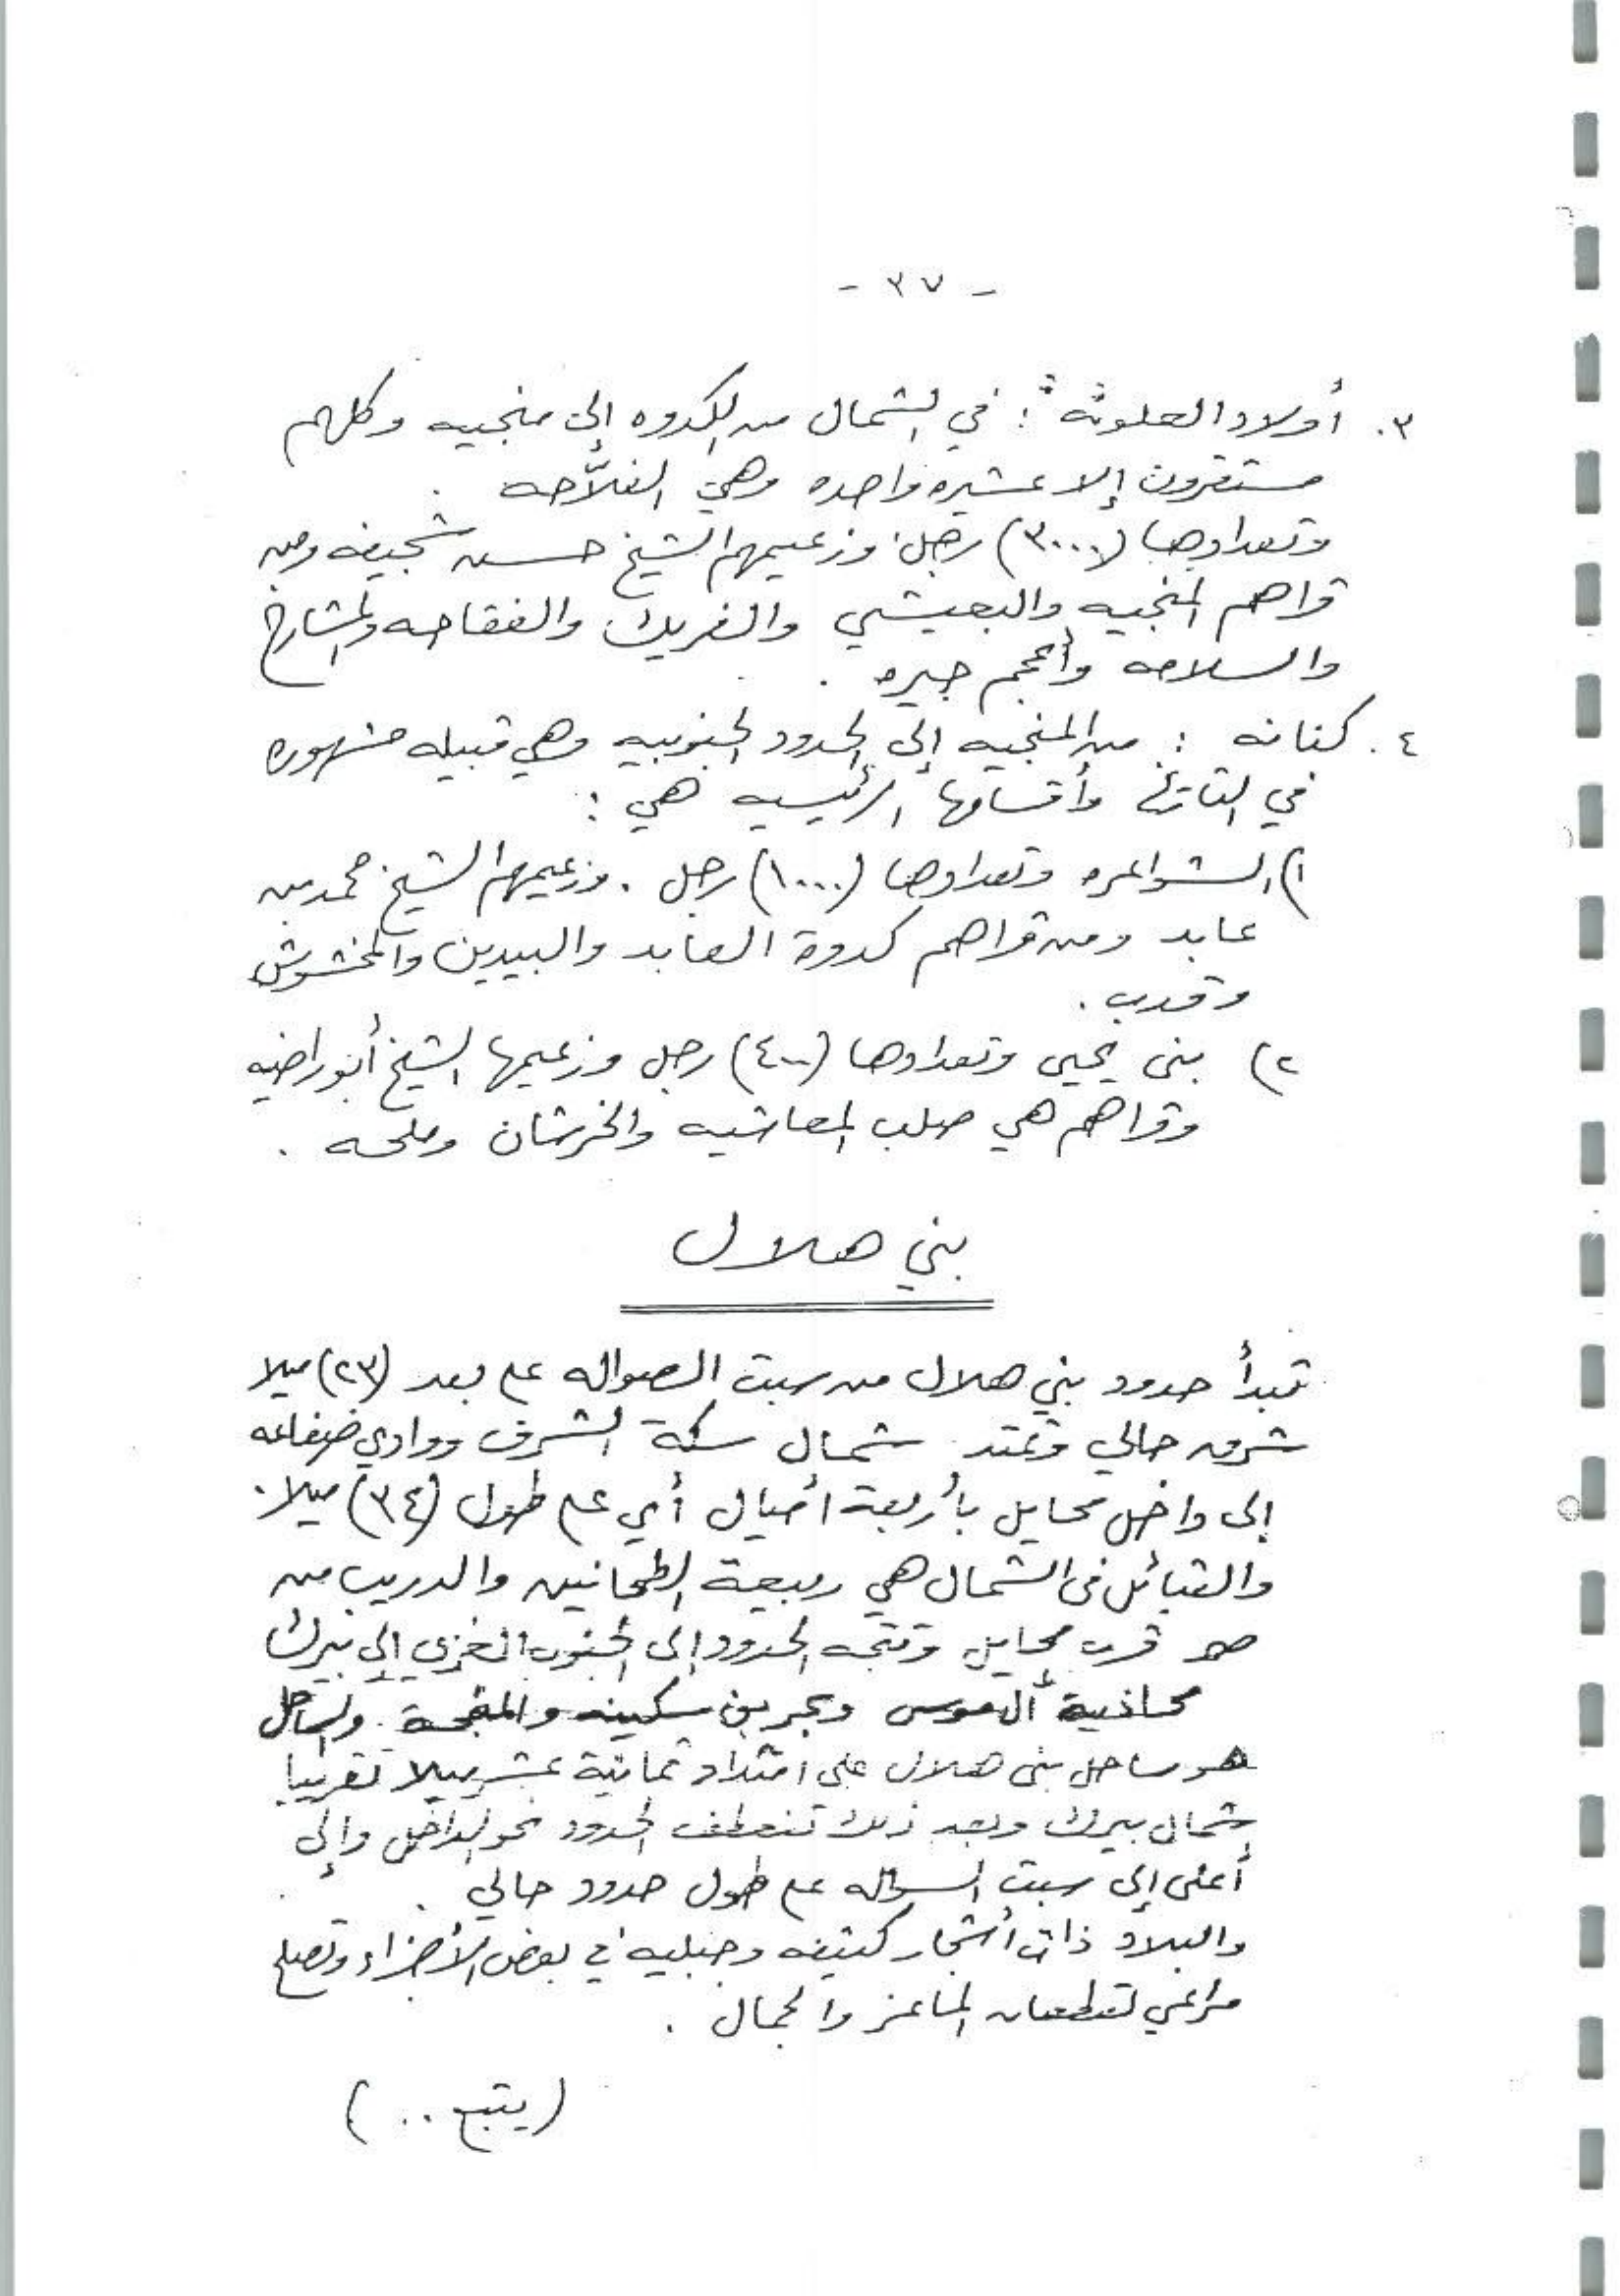 - ٣٧ -
٣. أولاد العلوثة : في الشمال من الكدوه إلى منجيه وكلهم
مستقرون إلا عشيره واحده وهي الفلّاحه .
وتعدادها (٣٠٠٠) رجل وزعيمهم الشيخ حسن شجيفه ومن
قراهم المنجيه والبعيشي والفريك والفقاحه والمشارخ
والسلامه وأعجم جبره .
٤. كنانه : من المنجيه إلى الحدود الجنوبيه وهي قبيله مشهوره
في التاريخ وأقسامها الرئيسيه هي :
١) الشواعره وتعدادها (١٠٠٠) رجل . وزعيمهم الشيخ محمد بن
عابد ومن قراهم كدوة العابد والبيدين والمخشوش
وقدب .
٢) بنى يحيى وتعدادها (٤٠٠) رجل وزعيمها الشيخ أبو راضيه
وقراهم هي صلب المعاشيه والخرشان وملحه .
بني هلال
تبدأ حدود بني هلال من سبت الصواله على بعد (٢٣) ميلا
شرق حالي وتمتد شمال سكة الشرف ووادي ضفاعه
إلى داخل محايل بأربعة أميال أي على طول (٣٤) ميلا.
والقبائل فى الشمال هي ربيعة الطحانين والدريب من
قرب محايل وتتجه الحدود إلى الجنوب الغربي إلى بيرك
محاذية آل موسى وبحر بن سكينه والمنجحة والساحل
هو ساحل بنى هلال على امتداد ثمانية عشر ميلا تقريبا
شمال بيرك وبعد ذلك تنعطف الحدود نحو الداخل وإلى
أعلى إلى سبت السواله على طول حدود حالي .
والبلاد ذات أشجار كثيفه وجبليه في بعض الأجزاء وتصلح
مراعي لقطعان الماعز والجمال .
(يتبع ..)